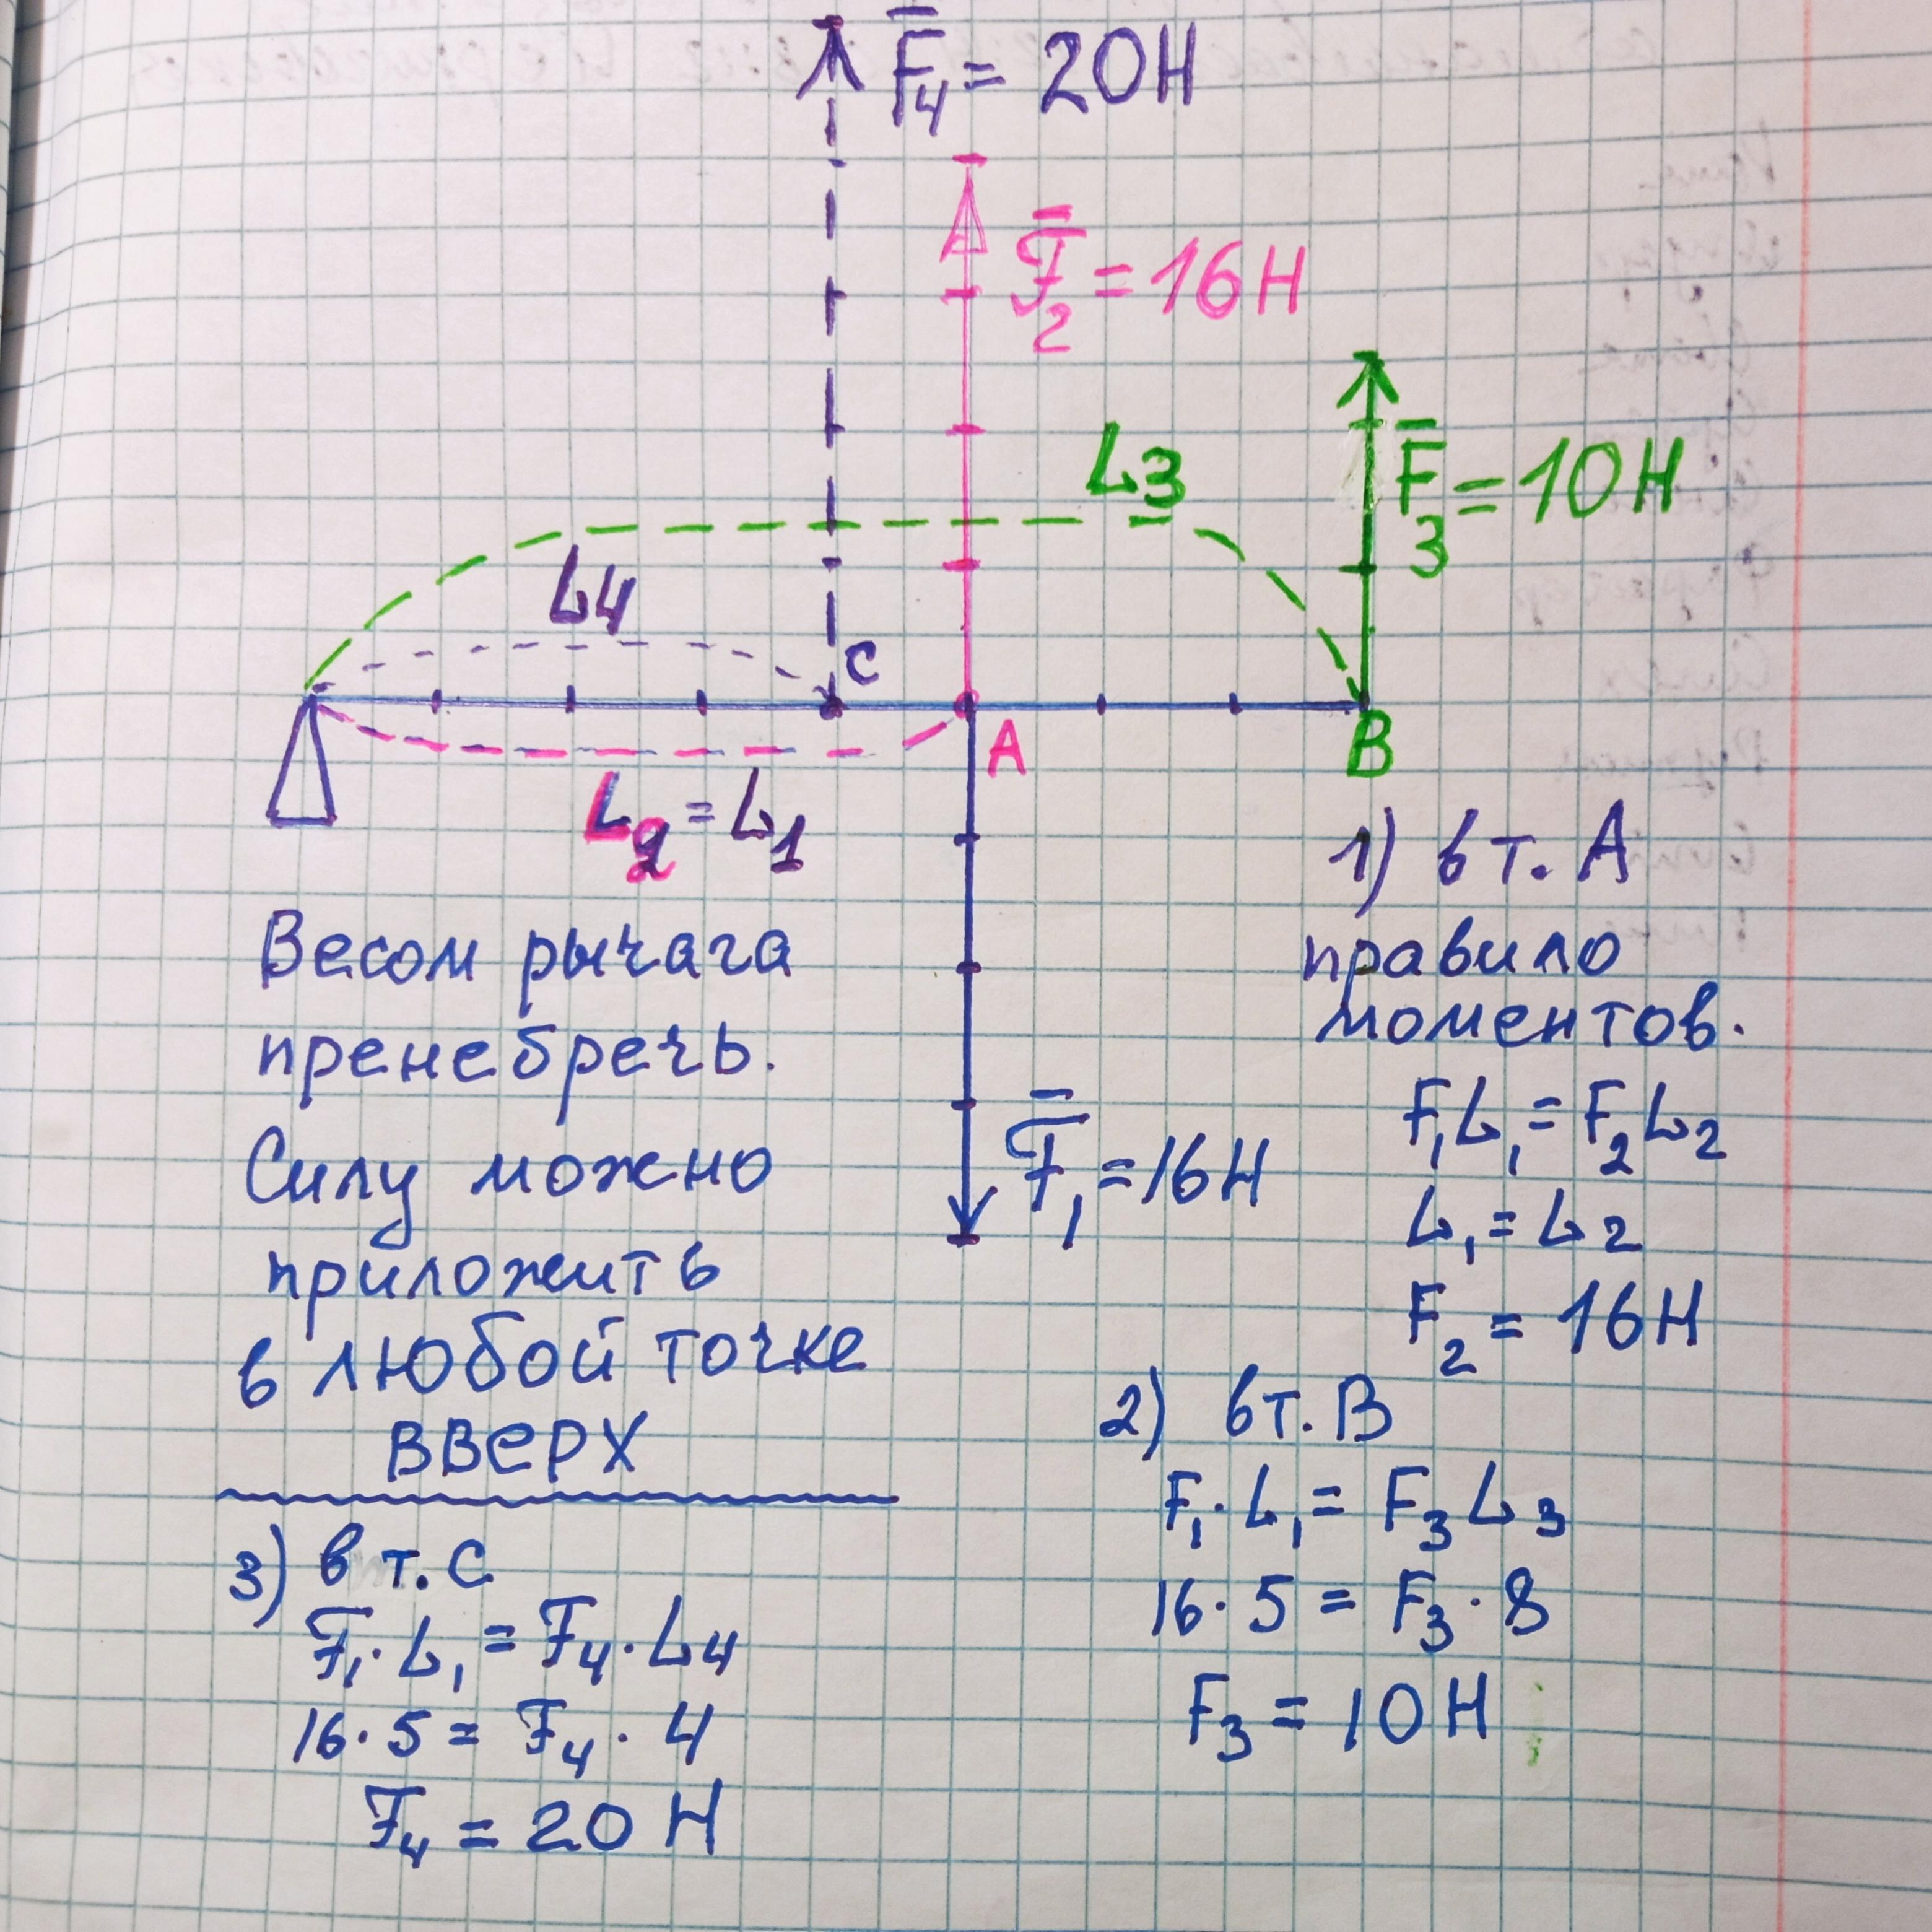 F̅₄ = 20Н
F̅₂ = 16Н
L3
F̅₃ = 10Н
L4
C
A
B
L₂ = L₁
F̅₁ = 16Н
Весом рычага
пренебречь.
Силу можно
приложить
в любой точке
вверх
1) в т. А
правило
моментов.
F₁L₁ = F₂L₂
L₁ = L₂
F₂ = 16Н
2) в т. В
F₁·L₁ = F₃L₃
16·5 = F₃·8
F₃ = 10Н
3) в т. С
F₁·L₁ = F₄·L₄
16·5 = F₄·4
F₄ = 20 Н